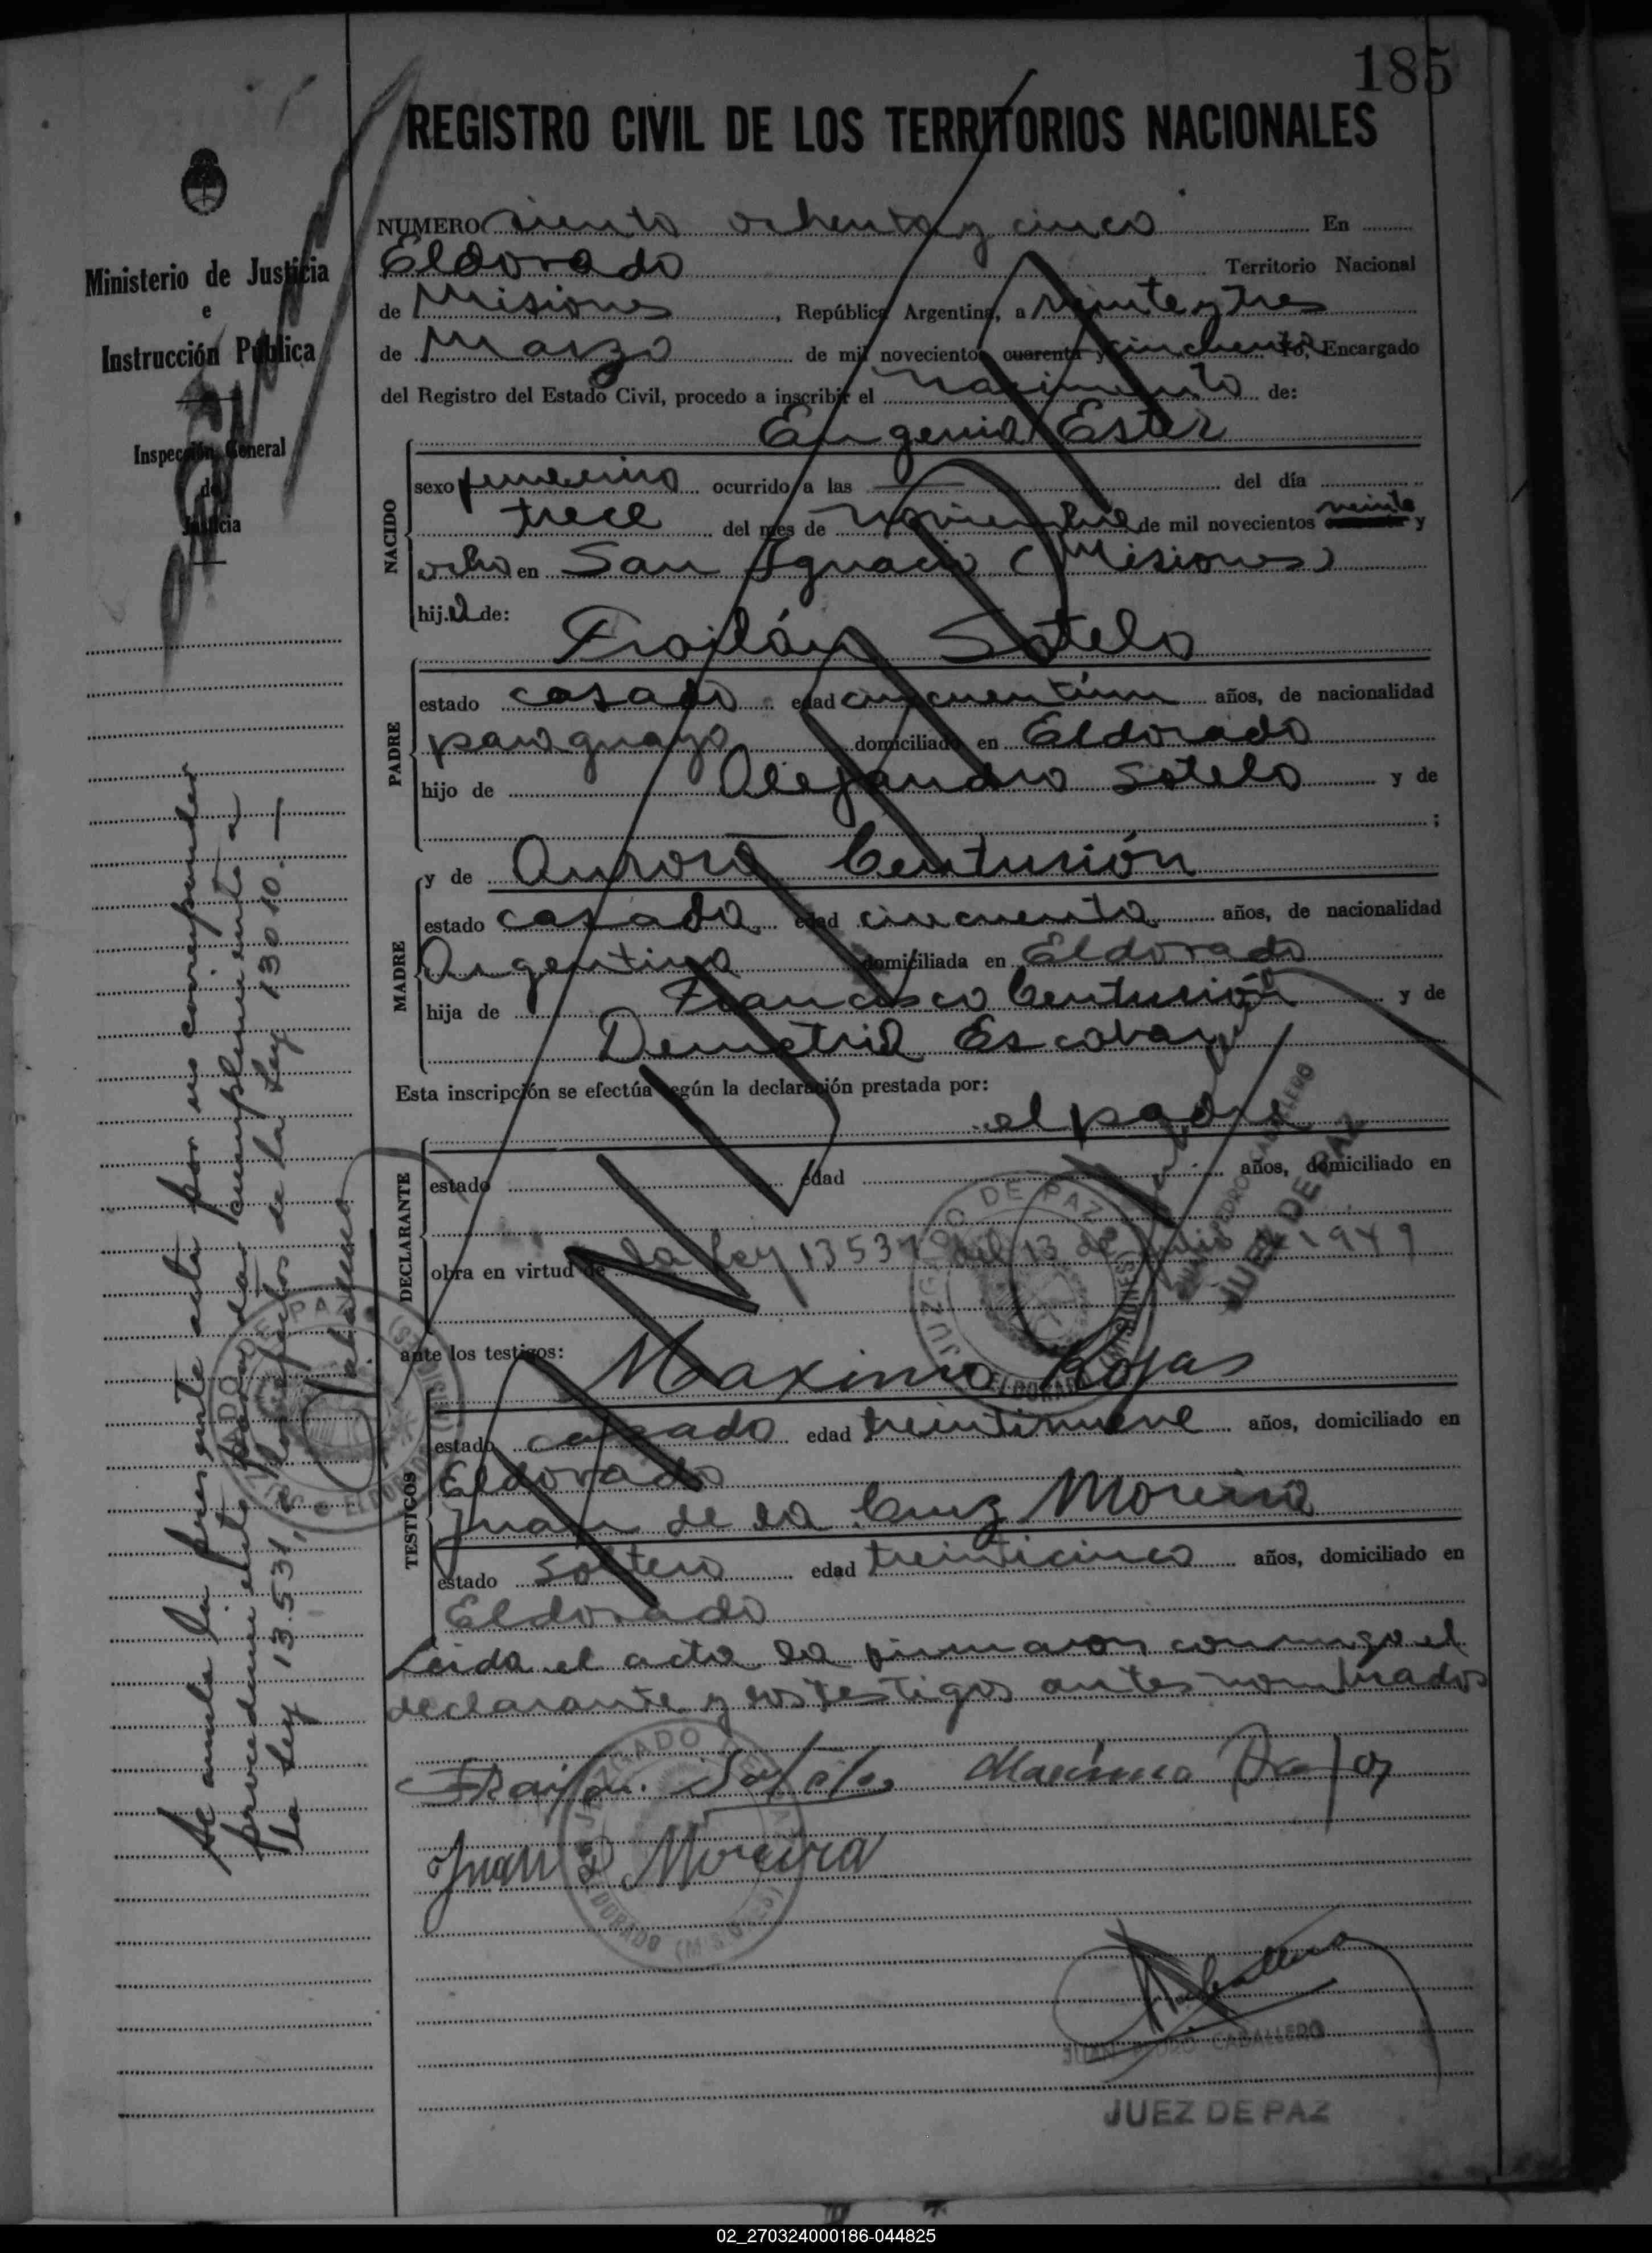 185
REGISTRO CIVIL DE LOS TERRITORIOS NACIONALES
Ministerio de Justicia
e
Instrucción Pública
Inspección General
de
Justicia
NUMERO ciento ochenta y cinco En
Eldorado Territorio Nacional
de Misiones, República Argentina, a veinte y tres
de Marzo de mil novecientos cuarenta y cincuenta Yo, Encargado
del Registro del Estado Civil, procedo a inscribir el nacimiento de:
Eugenia Ester
NACIDO
sexo femenino ocurrido a las — del día
trece del mes de noviembre de mil novecientos veinte y
ocho en San Ignacio (Misiones)
hij.a de:
Froilán Sotelo
PADRE
estado casado edad cincuentiun años, de nacionalidad
paraguayo domiciliado en Eldorado
hijo de Alejandro Sotelo y de
;
y de Aurora Centurión
MADRE
estado casada edad cincuenta años, de nacionalidad
Argentina domiciliada en Eldorado
hija de Francisco Centurión y de
Demetria Escobar
Esta inscripción se efectúa según la declaración prestada por:
el padre
DECLARANTE
estado edad años, domiciliado en
obra en virtud de la ley 13537 del 13 de Julio 1949
ante los testigos: Maximo Rojas
TESTIGOS
estado casado edad treintinueve años, domiciliado en
Eldorado
Juan de la Cruz Moreira
estado soltero edad treinticinco años, domiciliado en
Eldorado
Leida el acta la firmaron conmigo el
declarante y los testigos antes nombrados
Froilan Sotelo Maximo Rojas
Juan D Moreira
JUZGADO DE PAZ
ELDORADO (MISIONES)
JUAN PEDRO CABALLERO
JUEZ DE PAZ
Se anula la presente acta por no corresponder
procedimiento cumplimiento a
la Ley 13.531, de la Ley 13010.—
JUZGADO DE PAZ
ELDORADO (MISIONES)
JUZGADO DE PAZ
ELDORADO (MISIONES)
JUAN PEDRO CABALLERO
JUEZ DE PAZ
02_270324000186-044825